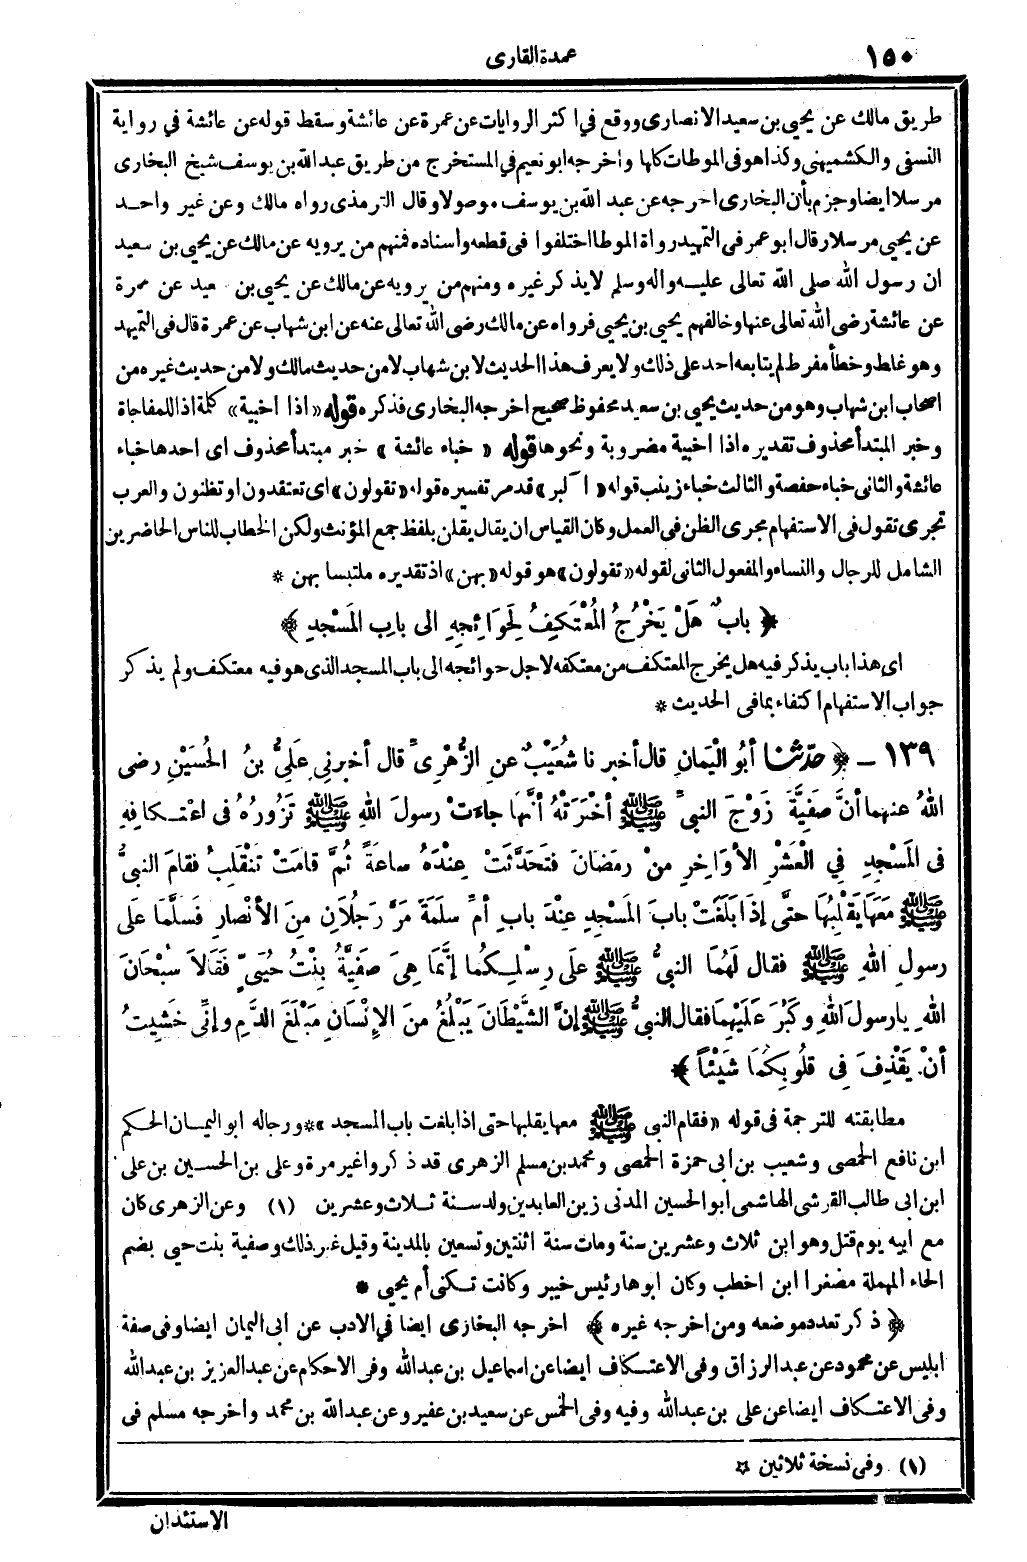 ١٥٠
عمدة القارى
طريق مالك عن يحيى بن سعيد الانصارى ووقع في اكثر الروايات عن عمرة عن عائشة وسقط قوله عن عائشة في رواية
النسفى والكشميهنى وكذا هو فى الموطات كلها واخرجه ابو نعيم في المستخرج من طريق عبد الله بن يوسف شيخ البخارى
مرسلا ايضا وجزم بأن البخارى اخرجه عن عبد الله بن يوسف موصولا وقال الترمذى رواه مالك وعن غير واحد
عن يحيى مرسلا وقال ابو عمر فى التمهيد رواة الموطا اختلفوا فى قطعه واسناده فمنهم من يرويه عن مالك عن يحيى بن سعيد
ان رسول الله صلى الله تعالى عليه وآله وسلم لا يذكر غيره ومنهم من يرويه عن مالك عن يحيى بن سعيد عن عمرة
عن عائشة رضى الله تعالى عنها وخالفهم يحيى بن يحيى فرواه عن مالك رضى الله تعالى عنه عن ابن شهاب عن عمرة قال فى التمهيد
وهو غلط وخطأ مفرط لم يتابعه احد على ذلك ولا يعرف هذا الحديث لابن شهاب لا من حديث مالك ولا من حديث غيره من
اصحاب ابن شهاب وهو من حديث يحيى بن سعيد محفوظ صحيح اخرجه البخارى فذكره قوله «اذا اخبية» كلمة اذا للمفاجاة
وخبر المبتدأ محذوف تقديره اذا اخبية مضروبة ونحوها قوله « خباء عائشة » خبر مبتدأ محذوف اى احدها خباء
عائشة والثانى خباء حفصة والثالث خباء زينب قوله «آلبر» قد مر تفسيره قوله «تقولون» اى تعتقدون او تظنون والعرب
تجرى تقول فى الاستفهام مجرى الظن فى العمل وكان القياس ان يقال يقلن بلفظ جمع المؤنث ولكن الخطاب للناس الحاضرين
الشامل للرجال والنساء والمفعول الثانى لقوله «تقولون» هو قوله «بهن» اذ تقديره ملتبسا بهن *
﴿ بابٌ هَلْ يَخْرُجُ المُعْتَكِفُ لِحَوَائِجِهِ الى بابِ المَسْجِدِ ﴾
اى هذا باب يذكر فيه هل يخرج المعتكف من معتكفه لاجل حوائجه الى باب المسجد الذى هو فيه معتكف ولم يذكر
جواب الاستفهام اكتفاء بما فى الحديث *
١٣٩ – ﴿ حدّثنا أبُو اليَمانِ قال أخبرنا شُعَيْبٌ عنِ الزُّهْرِىِّ قال أخبرنى عَلِىُّ بنُ الحُسَيْنِ رضى
اللهُ عنهما أنَّ صَفِيَّةَ زَوْجَ النبىِّ ﷺ أخْبَرَتْهُ أنَّها جاءَتْ رسولَ اللهِ ﷺ تَزُورُهُ فى اعْتِكافِهِ
فى المَسْجِدِ فى العَشْرِ الأوَاخِرِ منْ رمَضانَ فَتَحَدَّثَتْ عِنْدَهُ ساعَةً ثُمَّ قامَتْ تَنْقَلِبُ فقامَ النبىُّ
ﷺ مَعَها يَقْلِبُها حتَّى إذَا بَلَغَتْ بابَ المَسْجِدِ عِنْدَ بابِ أمِّ سَلَمَةَ مَرَّ رَجُلَانِ مِنَ الأنْصارِ فَسَلَّمَا عَلى
رسولِ اللهِ ﷺ فقال لَهُما النبىُّ ﷺ عَلَى رِسْلِكُما إنَّمَا هِىَ صَفِيَّةُ بِنْتُ حُيَىٍّ فَقَالَا سُبْحَانَ
اللهِ يا رسولَ اللهِ وكَبُرَ عَلَيْهِما فقال النبىُّ ﷺ إنَّ الشَّيْطَانَ يَبْلُغُ منَ الإنْسَانِ مَبْلَغَ الدَّمِ وإنِّى خَشِيتُ
أنْ يَقْذِفَ فى قُلُوبِكُمَا شَيْئاً ﴾
مطابقته للترجمة فى قوله «فقام النبى ﷺ معها يقلبها حتى اذا بلغت باب المسجد » * ورجاله ابو اليمان الحكم
ابن نافع الحمصى وشعيب بن ابى حمزة الحمصى ومحمد بن مسلم الزهرى قد ذكروا غير مرة وعلى بن الحسين بن على
ابن ابى طالب القرشى الهاشمى ابو الحسين المدنى زين العابدين ولد سنة ثلاث وعشرين (١) وعن الزهرى كان
مع ابيه يوم قتل وهو ابن ثلاث وعشرين سنة ومات سنة اثنتين وتسعين بالمدينة وقيل غير ذلك وصفية بنت حيى بضم
الحاء المهملة مصغرا ابن اخطب وكان ابوها رئيس خيبر وكانت تكنى أم يحيى *
﴿ ذكر تعدد موضعه ومن اخرجه غيره ﴾ اخرجه البخارى ايضا في الادب عن ابى اليمان ايضا وفى صفة
ابليس عن محمود عن عبد الرزاق وفى الاعتكاف ايضا عن اسماعيل بن عبد الله وفى الاحكام عن عبد العزيز بن عبد الله
وفى الاعتكاف ايضا عن على بن عبد الله وفيه وفى الخمس عن سعيد بن عفير وعن عبد الله بن محمد واخرجه مسلم فى
(١) وفى نسخة ثلاثين *
الاستئذان